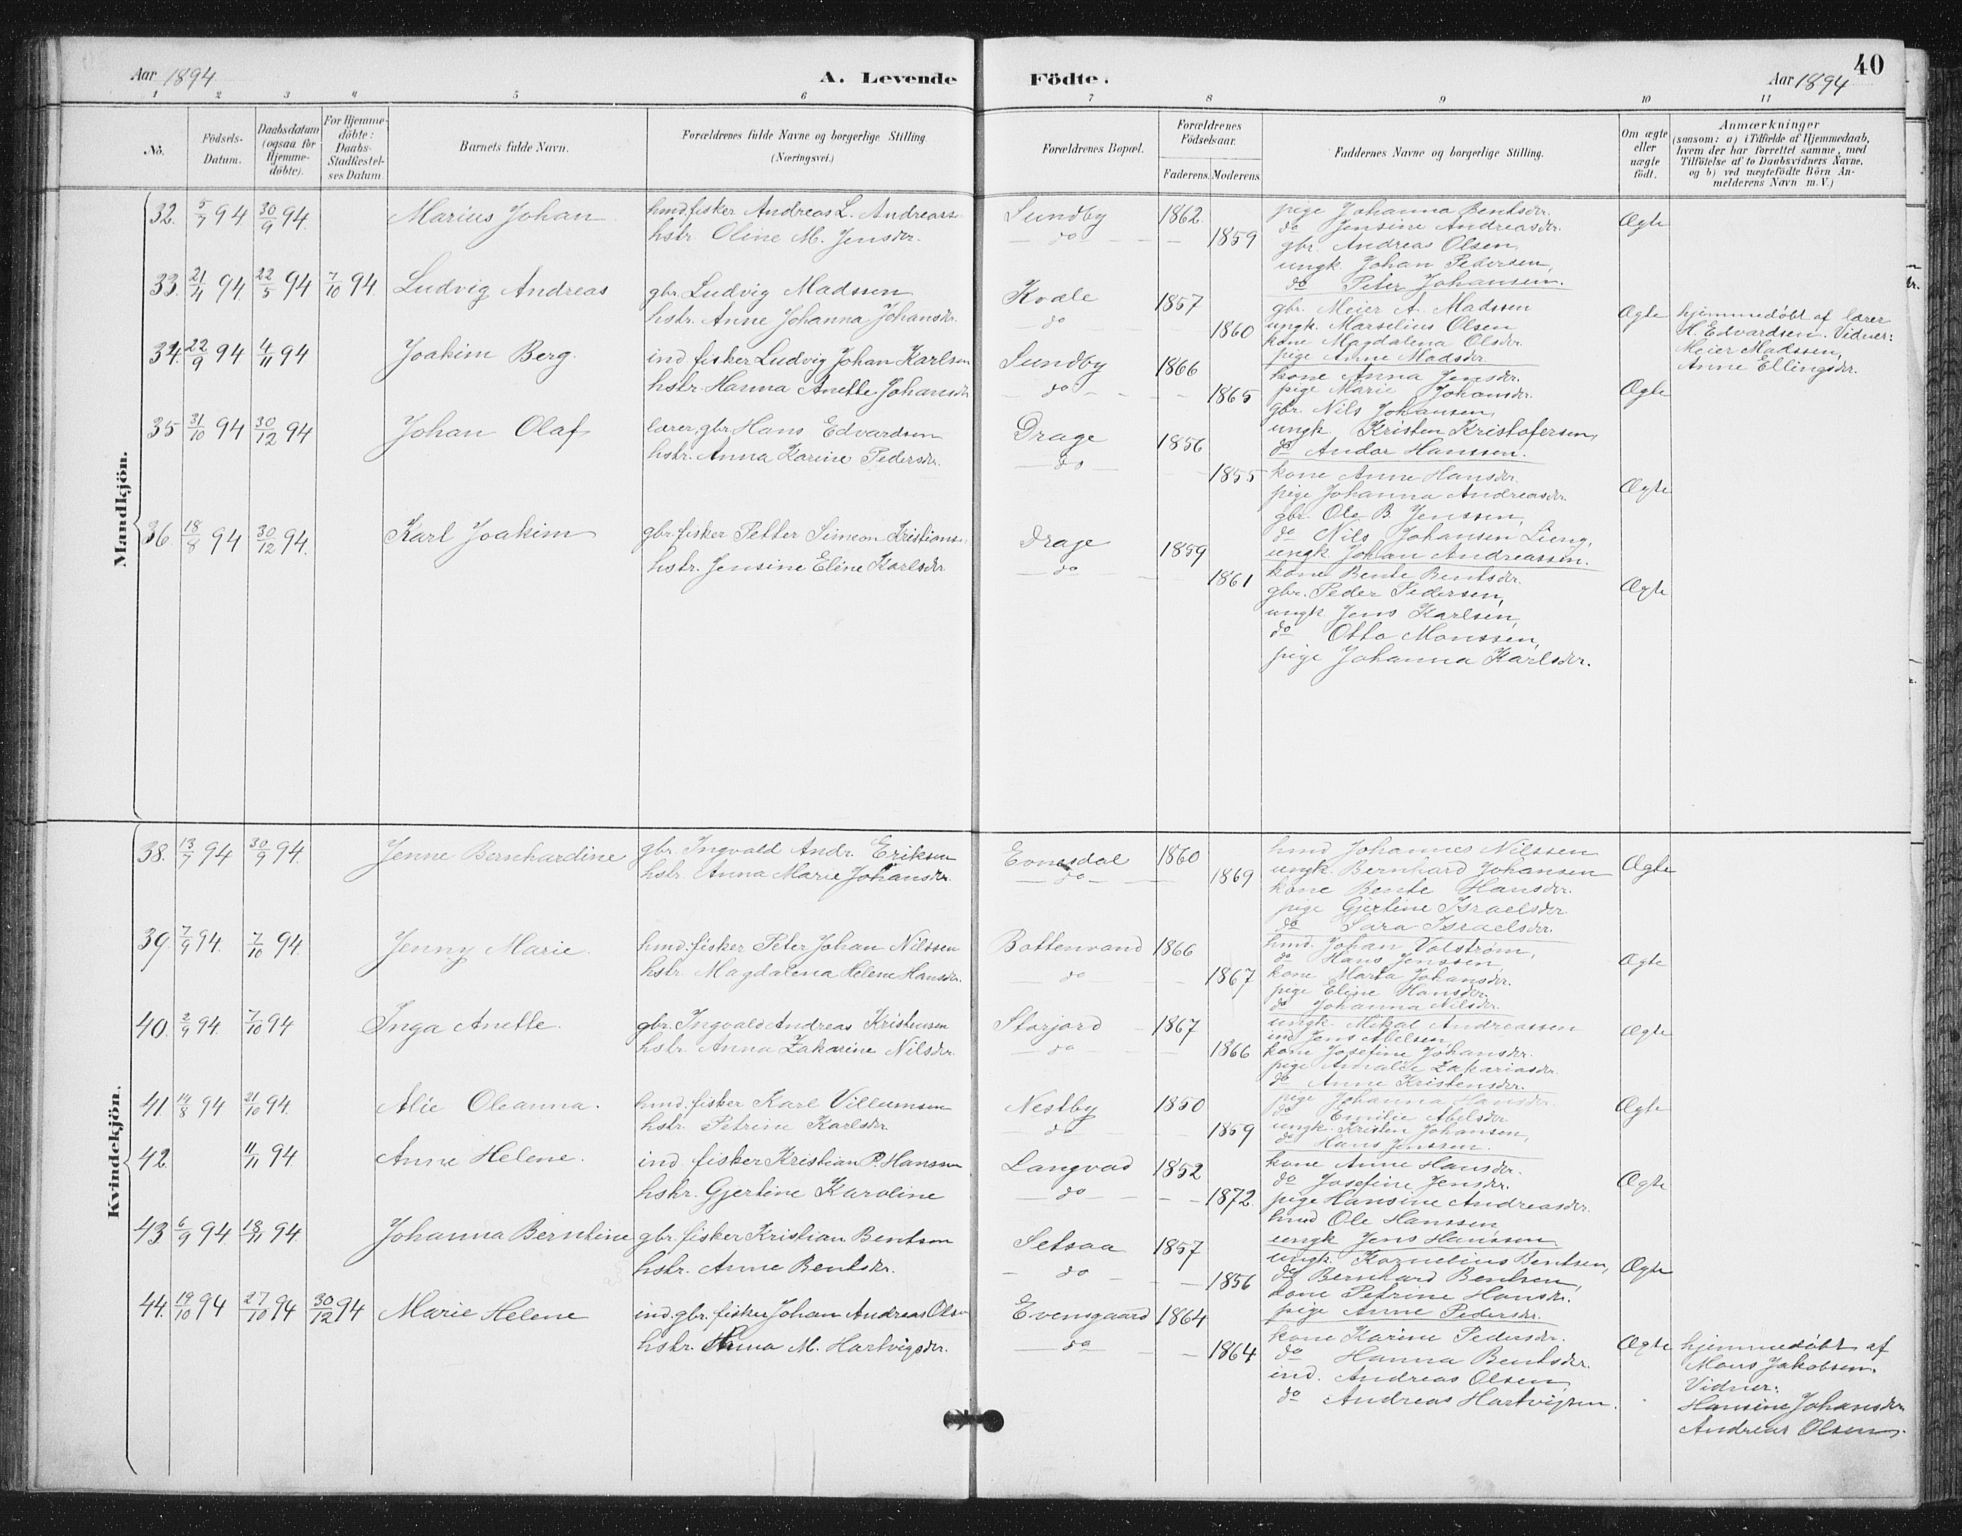 Aar 1894
A. Levende
Födte.
Aar 1894
40
1 2 3 4 5 6 7 8 9 10 11
No.
Födsels-Datum.
Daabsdatum (ogsaa for Hjemme-döbte).
For Hjemme-döbte: Daabs-Stadfæstel-ses Datum.
Barnets fulde Navn.
Forældrenes fulde Navne og borgerlige Stilling
(Næringsvei.)
Forældrenes Bopæl.
Forældrenes Födselsaar.
Faderens. Moderens.
Faddernes Navne og borgerlige Stilling.
Om ægte eller uægte födt.
Anmærkninger
(saasom: a) i Tilfælde af Hjemmedaab,
hvem der har forrettet samme, med
Tilföielse af to Daabsvidners Navne,
og b) ved uægtefödte Börn An-
melderens Navn m. V.)
Mandkjön.
32. 5/7 94 30/9 94. Marius Johan hmd, fisker Andreas L. Andreass Sundby 1862
hstr Oline M. Jensdr. do 1859
pige Johanna Bentsdr.
do Jensine Andreasdr.
gbr. Andreas Olsen,
ungk. Johan Pedersen,
do Peter Johansen.
Ægte
33. 21/4 94. 22/5 94 7/10 94. Ludvig Andreas gbr. Ludvig Madssen Kvale 1857
hstr. Anne Johanna Johansdr. do 1860
gbr. Meier A. Madssen
ungk. Marselius Olsen
kone Magdalena Olsdr.
pige Anne Madsdr.
Ægte
hjemmedöbt af lærer
H. Edvardsen. Vidner:
Meier Madssen,
Anne Ellingsdr.
34. 22/9 94 4/11 94 Joakim Berg. ind fisker Ludvig Johan Karlsen Sundby 1866
hstr. Hanna Anette Johansdr do 1865
kone Anna Jensdr.
pige Marie Johansdr.
gbr. Nils Johansen,
ungk. Kristen Kristofersen,
do Andor Hanssen.
Ægte
35 31/10 94 30/12 94 Johan Olaf lærer, gbr Hans Edvardsen Drage 1856
hstr. Anna Karine Pedersdr. do 1855
kone Anne Hansdr.
pige Johanna Andreasdr.
gbr. Ole B. Jenssen,
do Nils Johansen Lieng,
ungk. Johan Andreassen.
Ægte
36. 18/8 94 30/12 94. Karl Joakim gbr. fisker Petter Simeon Kristians. Drage 1859
hstr. Jensine Eline Karlsdr do 1861
kone Bente Bentsdr.
gbr. Peder Pedersen,
ungk Jens Karlsen,
do Otto Monssen,
pige Johanna Karlsdr.
Ægte
Kvindekjön.
38. 13/7 94 30/9 94. Jenne Bernhardine gbr. Ingvald Andr. Eriksen Evnesdal 1860
hstr. Anna Marie Johansdr. do 1869
hmd Johannes Nilssen
ungk. Bernhard Johansen
kone Bente Hansdr.
pige Gjertine Israelsdr.
do Sara Israelsdr.
Ægte
39. 7/9 94. 7/10 94. Jenny Marie. hmd. fisker Peter Johan Nilssen Bottenvand 1866
hstr. Magdalena Helene Hansdr. do 1867
hmd. Johan Valstrøm,
do Hans Jenssen,
kone Marta Johansdr.
pige Eline Hansdr.
do Johanna Nilsdr.
Ægte
40. 2/9 94. 7/10 94 Inga Anette. gbr. Ingvald Andreas Kristensen Storjord 1867
hstr. Anna Zakarine Nilsdr. do 1866
ungk. Mikal Andreassen
ind Jens Abelsen
kone Josefine Johansdr.
pige Amalde Zakariasdr.
do Anne Kristensdr.
Ægte
41 14/8 94 21/10 94. Alie Oleanna. hmd. fisker Karl Villumsen Nestby 1850
hstr. Petrine Karlsdr do 1859
pige Johanna Hansdr.
do Emilie Abelsdr
ungk. Kristen Johansen,
do Hans Jenssen.
Ægte
42. 11/11 94 Anne Helene. ind fisker Kristian P. Hanssen Langvad 1852
hstr. Gjertine Karoline do 1872
kone Anne Hansdr.
do Josefine Jensdr.
pige Hansine Andreasdr.
hmd Ole Hanssen,
ungk Jens Hanssen
Ægte
43 6/9 94. 18/11 94. Johanna Berntine gbr. fisker Kristian Bentsen Setsaa 1857
hstr. Anne Bentsdr. do 1856
ungk. Kornelius Bentsen,
do Bernhard Bentsen,
kone Petrine Hansdr.
pige Anne Pedersdr.
Ægte
44. 19/10 94 27/10 94 30/12 94 Marie Helene ind. gbr. fisker Johan Andreas Olsen Evensgaard 1864
hstr. Anna M. Hartvigsdr. do 1864
kone Karine Pedersdr.
do Hanna Bentsdr.
ind. Andreas Olsen,
do Andreas Hartvigsen.
Ægte
hjemmedöbt af
Mons Jakobsen.
Vidner:
Hansine Johansdr
Andreas Olsen.